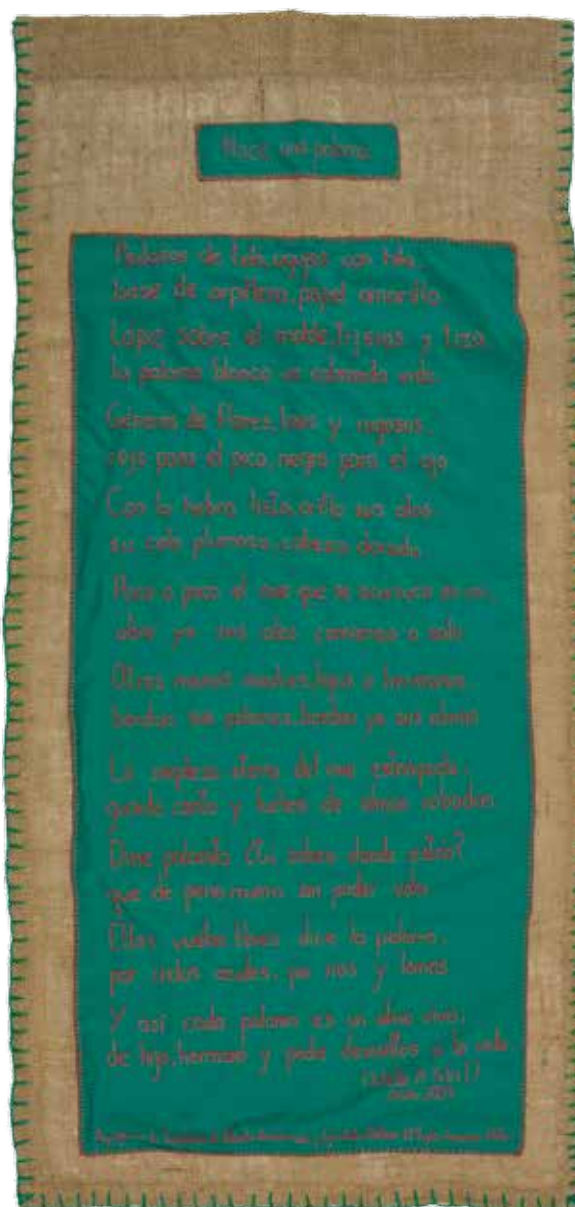 Nace una paloma
Pedazos de tela, aguja con hilo,
base de arpillera, papel amarillo
Lápiz sobre el molde, tijeras y tiza
la paloma blanca va cobrando vida.
Géneros de flores, lisos y rugosos,
rojo para el pico, negro para el ojo
Con la hebra lista, orillo sus alas
su cola plumosa, cabeza dorada
Poco a poco el ave que se acurruca en mi,
abre ya sus alas comienza a salir
Otras manos madres, hijas o hermanas
bordan sus palomas, bordan ya sus almas
La sorpresa eterna del ave estampada,
guarda canto y vuelo de almas robadas
Dime palomita ¿Tú sabes donde están?
que de pena muero sin poder volar
Ellos vuelan libres dice la paloma,
por cielos azules, por ríos y lomas
Y así cada paloma es un alma viva,
de hijo, hermano y padre devueltos a la vida.